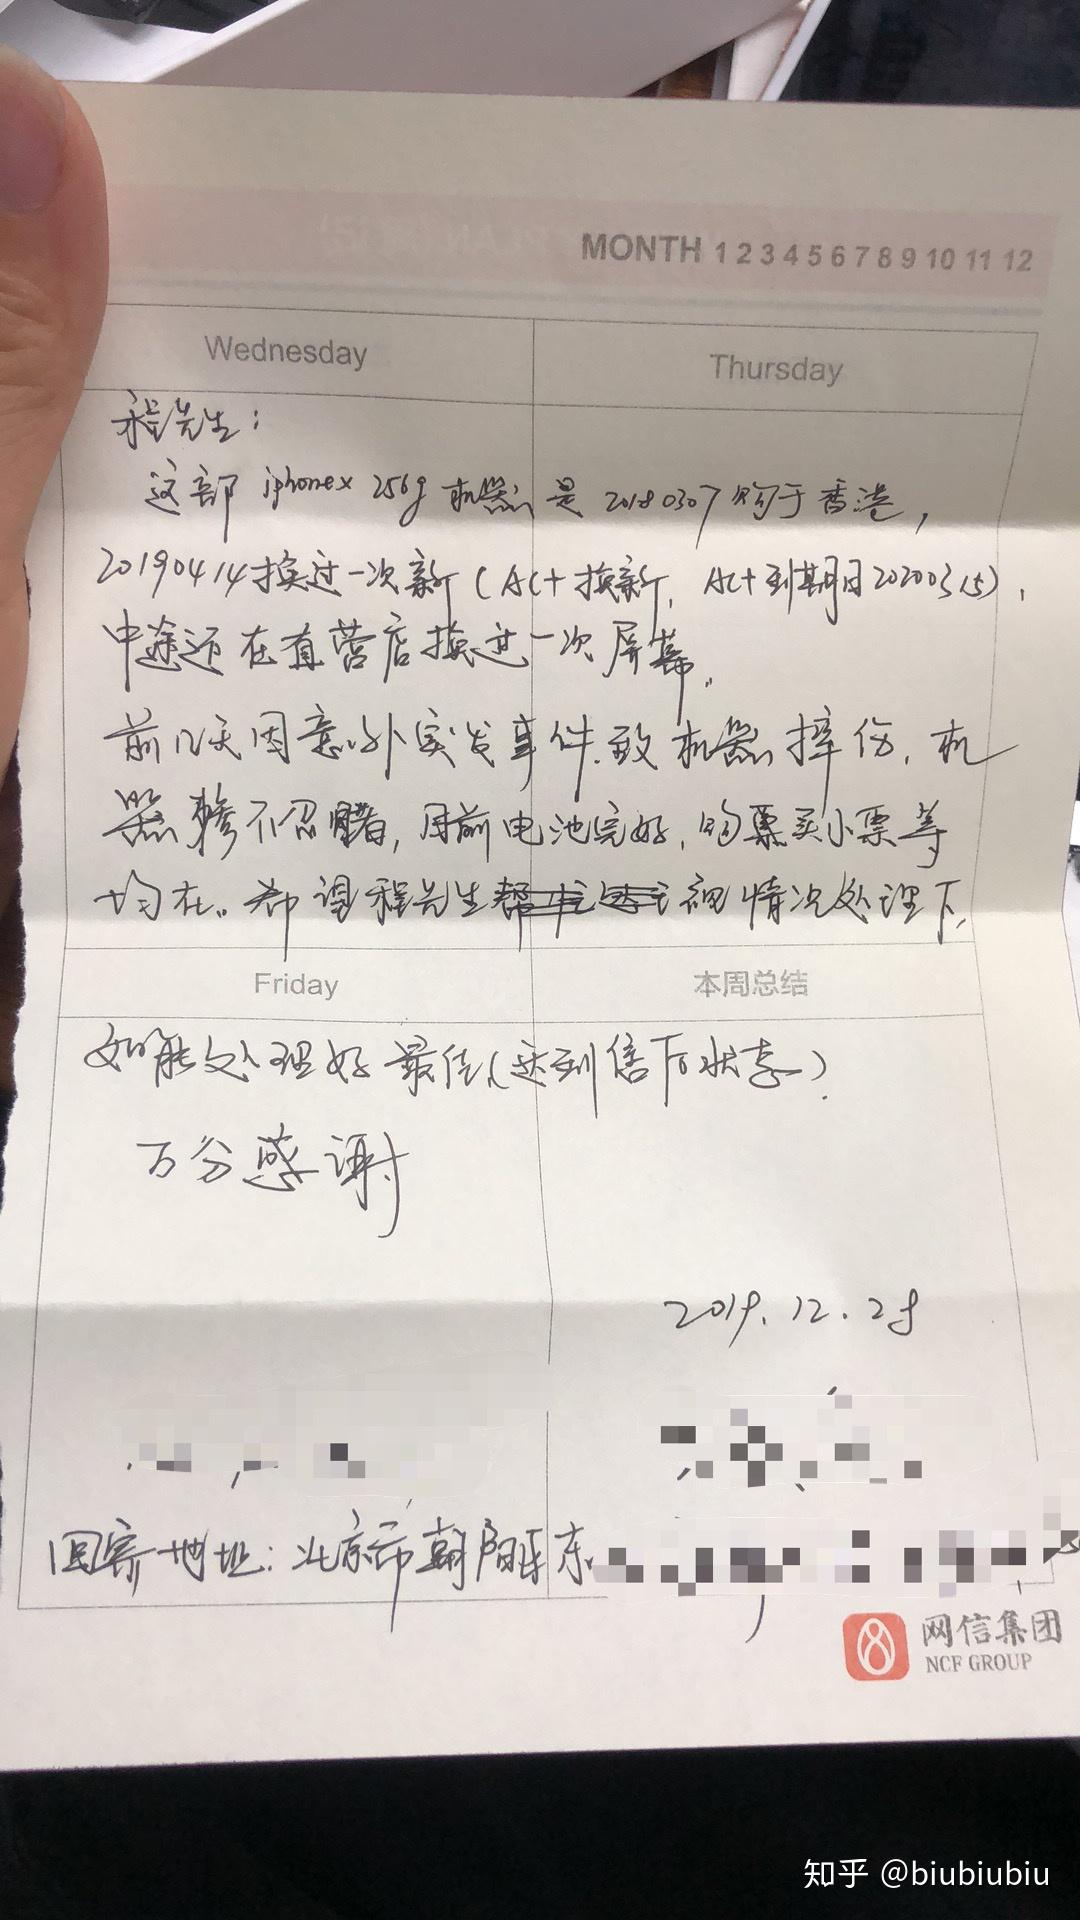 MONTH 1 2 3 4 5 6 7 8 9 10 11 12
Wednesday
Thursday
程先生：
这部 iphonex 256g 机器是 20180307 购于香港，
20190414换过一次新（AC+换新，AC+到期日20200315），
中途还在直营店换过一次屏幕。
前几天因意外突发事件致机器摔伤，机
器惨不忍睹，目前电池完好，购买小票等
均在。希望程先生视情况处理下，
Friday
本周总结
如能处理好最佳（达到售下状态）.
万分感谢
2019.12.28
回寄地址：北京市朝阳区东
网信集团
NCF GROUP
知乎 @biubiubiu